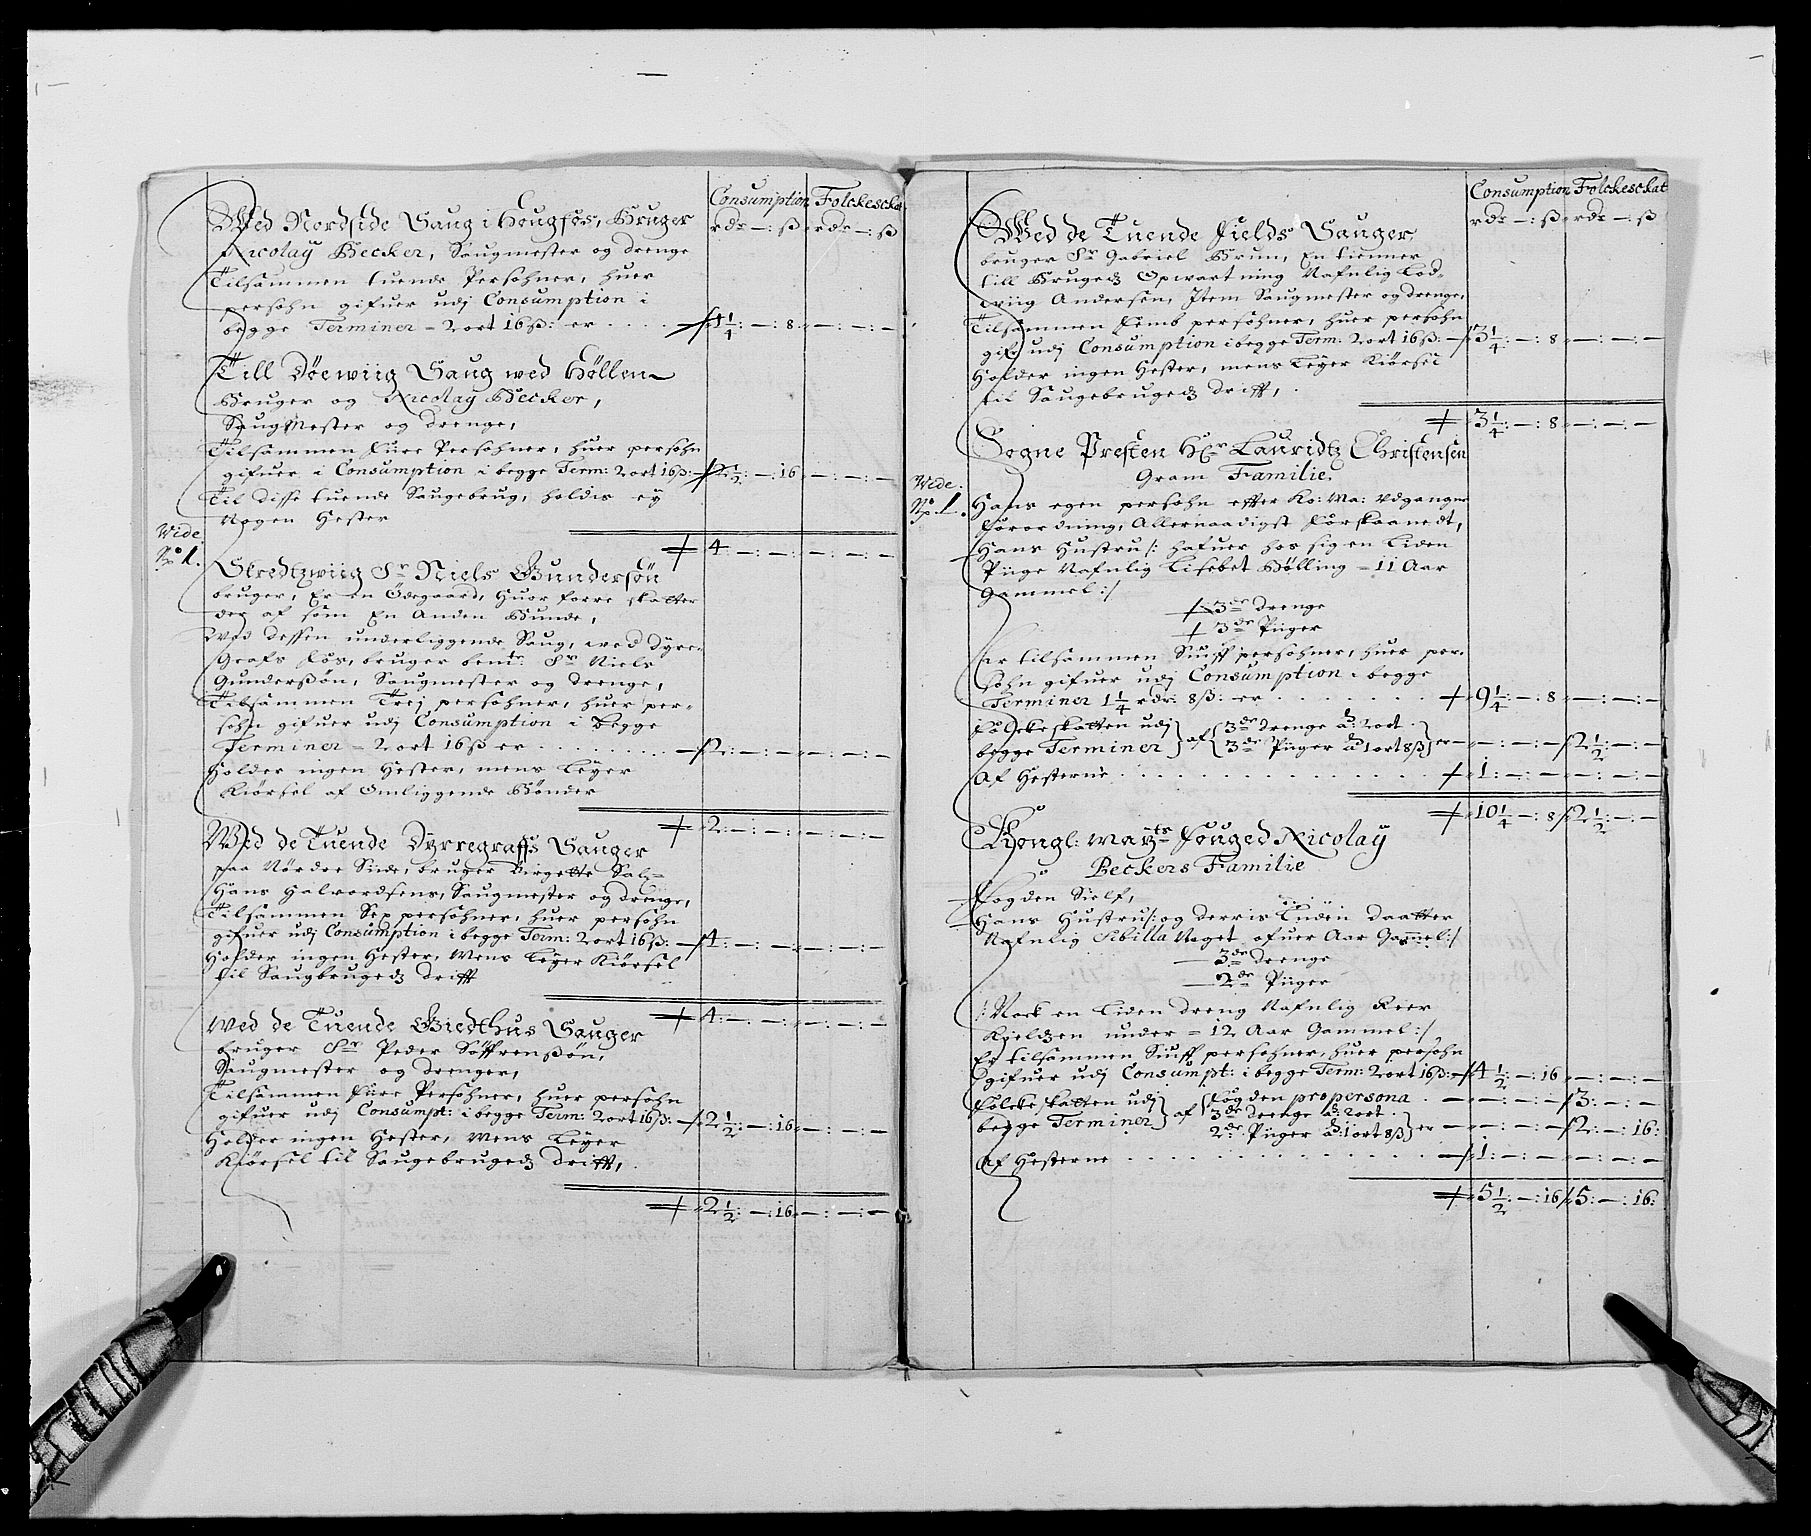 Consumption Folckeschat
rdr — : ß rdr — : ß
Wed Nordside Saug i Hougfos, Bruger
Nicolaÿ Becker, Saugmester og drenge
Tilsammen tuende Persohner, huer
persohn gifuer udj Consumption i
begge Terminer = 2 ort 16 ß: er . . . . 1 1/4 : — : 8 — : — : —
Till Döewiig Saug wed Höllen
Bruger og Nicolaÿ Becker,
Saugmester og drenge,
Tilsammen Fire Persohner, huer persohn
gifuer i Consumption i begge Term: 2 ort 16 ß: 2 1/2 : — : 16 — : — : —
Til disse tuende Saugebrug, holdis eÿ
Nogen Hester
4 : — : — : — : — : —
Wide
No 1.
Stredtzwiig Sr Niels Gundersön
bruger, Er en Ödegaard, huor forre skatter
der af som En Anden Bunde,
Wed dessen underliggende Saug, wed Dÿre-
Grafs Fos, bruger bemte Sr Niels
Gunderßön, Saugmester og drenge,
Tilsammen Trej persohner, huer per-
sohn gifuer udj Consumption i begge
Terminer = 2 ort 16 ß er . . . . . . . . 2 : — : — : — : — : —
Holder ingen Hester, mens Leÿer
Kiörsel af Omliggende Bönder
2 : — : — : — : — : —
Wed de Tuende Dÿrregraffs Sauger
paa Nordre Siide, bruger Birgette Sal:
Hans Halvordsens, Saugmester og drenge,
Tilsammen Sex persohner, huer persohn
gifuer udj Consumption i begge Term: 2 ort 16 ß: 4 : — : — : — : — : —
Holder ingen Hester, Mens Leÿer Kiörsel
til Saugbrugedz drifft
4 : — : — : — : — : —
Wed de Tuende Giedthus Sauger
bruger Sr Peder Söffrenßön,
Saugmester og drenger,
Tilsammen Fire Persohner, huer persohn
gifuer udj Consumpt: i begge Term: 2 ort 16 ß: 2 1/2 : — : 16 — : — : —
Holder ingen Hester, Mens Leÿer
Kiörsel til Saugebrugedz drifft,
2 1/2 : — : 16 — : — : —
Consumption Folckeschat
rdr — : ß rdr — : ß
Wed de Tuende Fields Sauger,
bruger Sr Gabriel Brun, En tienner
till Brugedz Opwartning Nafnlig Lod-
wiig Andersen, Item Saugmester og drenge,
Tilsammen Femb persohner, huer persohn
gifr udj Consumption i begge Term: 2 ort 16 ß: 3 1/4 : — : 8 — : — : —
Holder ingen Hester, mens Leÿer Kiörsel
til Saugebrugedz drifft,
3 1/4 : — : 8 — : — : —
Sogne Presten Hr Lauridtz Christensen
Gram Familie.
Wide
No 1.
Hans egen persohn effter Ko: Ma: Udgangne
Forordning, Allernaadigst Forskaanedt,
Hans Hustru /: hafuer hos sig en liden
Piige Nafnlig Lisebet Bölling = 11 Aar
Gammel :/
3de drenge
3de Piiger
Er tilsammen Siuff persohner, huer per-
sohn gifuer udj Consumption i begge
Terminer 1 1/4 rdr: 8 ß: er . . . . . 9 1/4 : — : 8 — : — : —
Folckeskatten udj
begge Terminer af 3de drenge a: 2 ort
3de Piiger a: 1 ort 8 ß er — : — : — 2 1/2 : — : —
Af Hesterne . . . . . . . . . . 1 : — : — — : — : —
10 1/4 : — : 8 2 1/2 : — : —
Kongl: Maÿts Fouged Nicolaÿ
Beckers Familie
Fogden Sielf,
Hans Hustru /: og derris liden daatter
Nafnlig Sibilla Noget ofuer Aar Gammel :/
3de drenge
2de Piiger
/: Nock en liden dreng Nafnlig Reer
Kieldsen under = 12 Aar Gammel :/
Er tilsammen Siuff persohner, huer persohn
gifuer udj Consumpt: i begge Term: 2 ort 16 ß: 4 1/2 : — : 16 — : — : —
Folckeskatten udj
begge Terminer af Fogden pro persona . — : — : — 3 : — : —
3de drenge a: 2 ort
2de Piiger a: 1 ort 8 ß er — : — : — 2 : — : 16 :
Af Hesterne . . . . . . . . . . 1 : — : — — : — : —
5 1/2 : — : 16 5 : — : 16 :